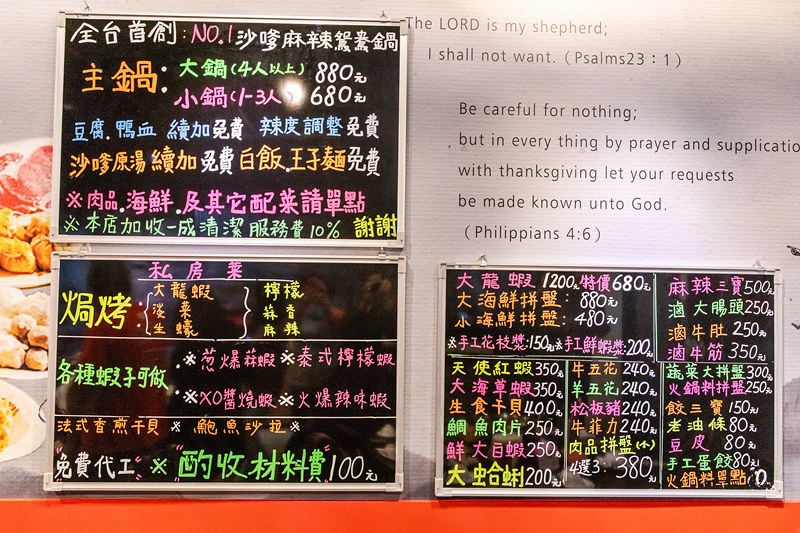 全台首創:NO.1沙嗲麻辣鴛鴦鍋
主鍋:大鍋(4人以上)880元
小鍋(1-3人)680元
豆腐.鴨血 續加免費 辣度調整免費
沙嗲原湯續加免費白飯.王子麵免費
※肉品.海鮮.及其它配菜請單點
※本店加收一成清潔服務費10% 謝謝
The LORD is my shepherd;
I shall not want.(Psalms23:1)
Be careful for nothing;
but in every thing by prayer and supplicatio
with thanksgiving let your requests
be made known unto God.
(Philippians 4:6)
私房菜
焗烤:大龍蝦 淡菜 生蠔 檸檬 蒜香 麻辣
各種蝦子可做:※蔥爆蒜蝦※泰式檸檬蝦
※XO醬燒蝦※火爆辣味蝦
法式香煎干貝 ※ 鮑魚沙拉 ※
免費代工 ※ 酌收材料費100元
大龍蝦1200元特價680元
大海鮮拼盤:880元
小海鮮拼盤:480元
※手工花枝漿:150元※手工鮮蝦漿:200元
天使紅蝦350元
大海草蝦350元
生食干貝400元
鯛魚肉片250元
鮮大白蝦250元
大蛤蜊200元
牛五花240元
羊五花240元
松板豬240元
牛菲力240元
肉品拼盤(小)
4選3:380元
麻辣三寶500元
滷大腸頭250元
滷牛肚250元
滷牛筋350元
蔬菜大拼盤300元
火鍋料拼盤250元
餃三寶150元
老油條80元
豆皮80元
手工蛋餃80元
火鍋料單點